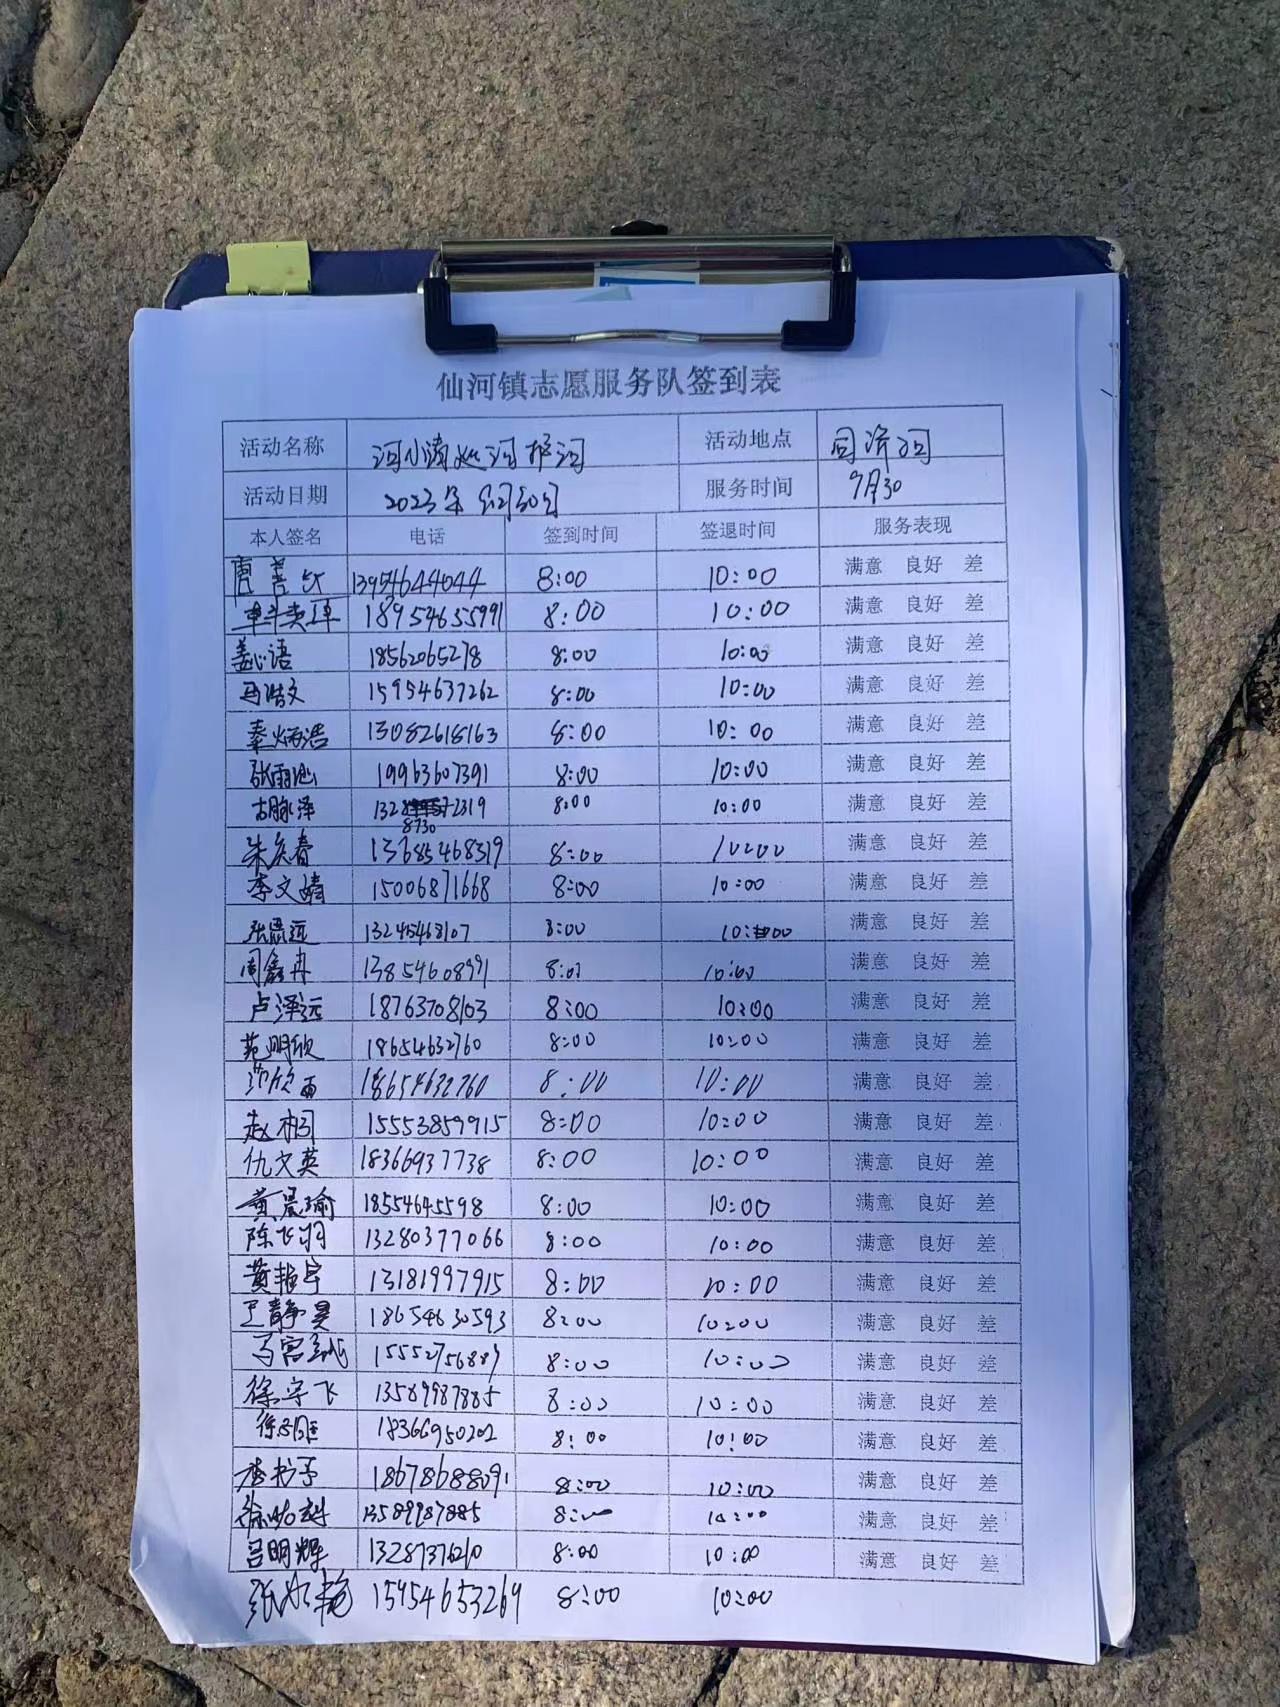 仙河镇志愿服务队签到表
活动名称 河小清巡河护河 活动地点 同济河
活动日期 2023年9月30日 服务时间 9月30
本人签名 电话 签到时间 签退时间 服务表现
13954644044 8:00 10:00 满意 良好 差
18954655991 8:00 10:00 满意 良好 差
姜心语 18562065278 8:00 10:00 满意 良好 差
马浩文 15954637262 8:00 10:00 满意 良好 差
秦炳浩 13082618163 8:00 10:00 满意 良好 差
张雨 19963607391 8:00 10:00 满意 良好 差
古脉泽 132 8730 2319 8:00 10:00 满意 良好 差
朱 春 13685468319 8:00 10:00 满意 良好 差
李文婧 15006871668 8:00 10:00 满意 良好 差
张 远 13245468107 8:00 10:00 满意 良好 差
周鑫冉 13854608991 8:00 10:00 满意 良好 差
卢泽远 18763708103 8:00 10:00 满意 良好 差
范明欣 18654632760 8:00 10:00 满意 良好 差
范欣雨 18654632760 8:00 10:00 满意 良好 差
赵桐 15553859915 8:00 10:00 满意 良好 差
仇文英 18366937738 8:00 10:00 满意 良好 差
黄晨瑜 18554645598 8:00 10:00 满意 良好 差
陈飞羽 13280377066 8:00 10:00 满意 良好 差
黄 宇 13181997915 8:00 10:00 满意 良好 差
王静昊 18654630593 8:00 10:00 满意 良好 差
马宫 15552756889 8:00 10:00 满意 良好 差
徐宇飞 13589987885 8:00 10:00 满意 良好 差
徐 18366950202 8:00 10:00 满意 良好 差
李书予 18678688091 8:00 10:00 满意 良好 差
徐 13589987885 8:00 10:00 满意 良好 差
吕明辉 13287376210 8:00 10:00 满意 良好 差
张 艳 15954653269 8:00 10:00